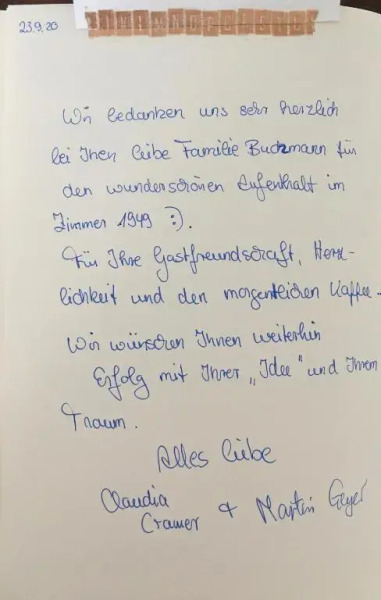 23.9.20
Wir bedanken uns sehr herzlich
bei Ihnen liebe Familie Buchmann für
den wunderschönen Aufenthalt im
Zimmer 1949 :).
Für Ihre Gastfreundschaft, Herz-
lichkeit und den morgentlichen Kaffee.
Wir wünschen Ihnen weiterhin
Erfolg mit Ihrer „Idee" und Ihrem
Traum.
Alles liebe
Claudia & Martin Geyer
Cramer